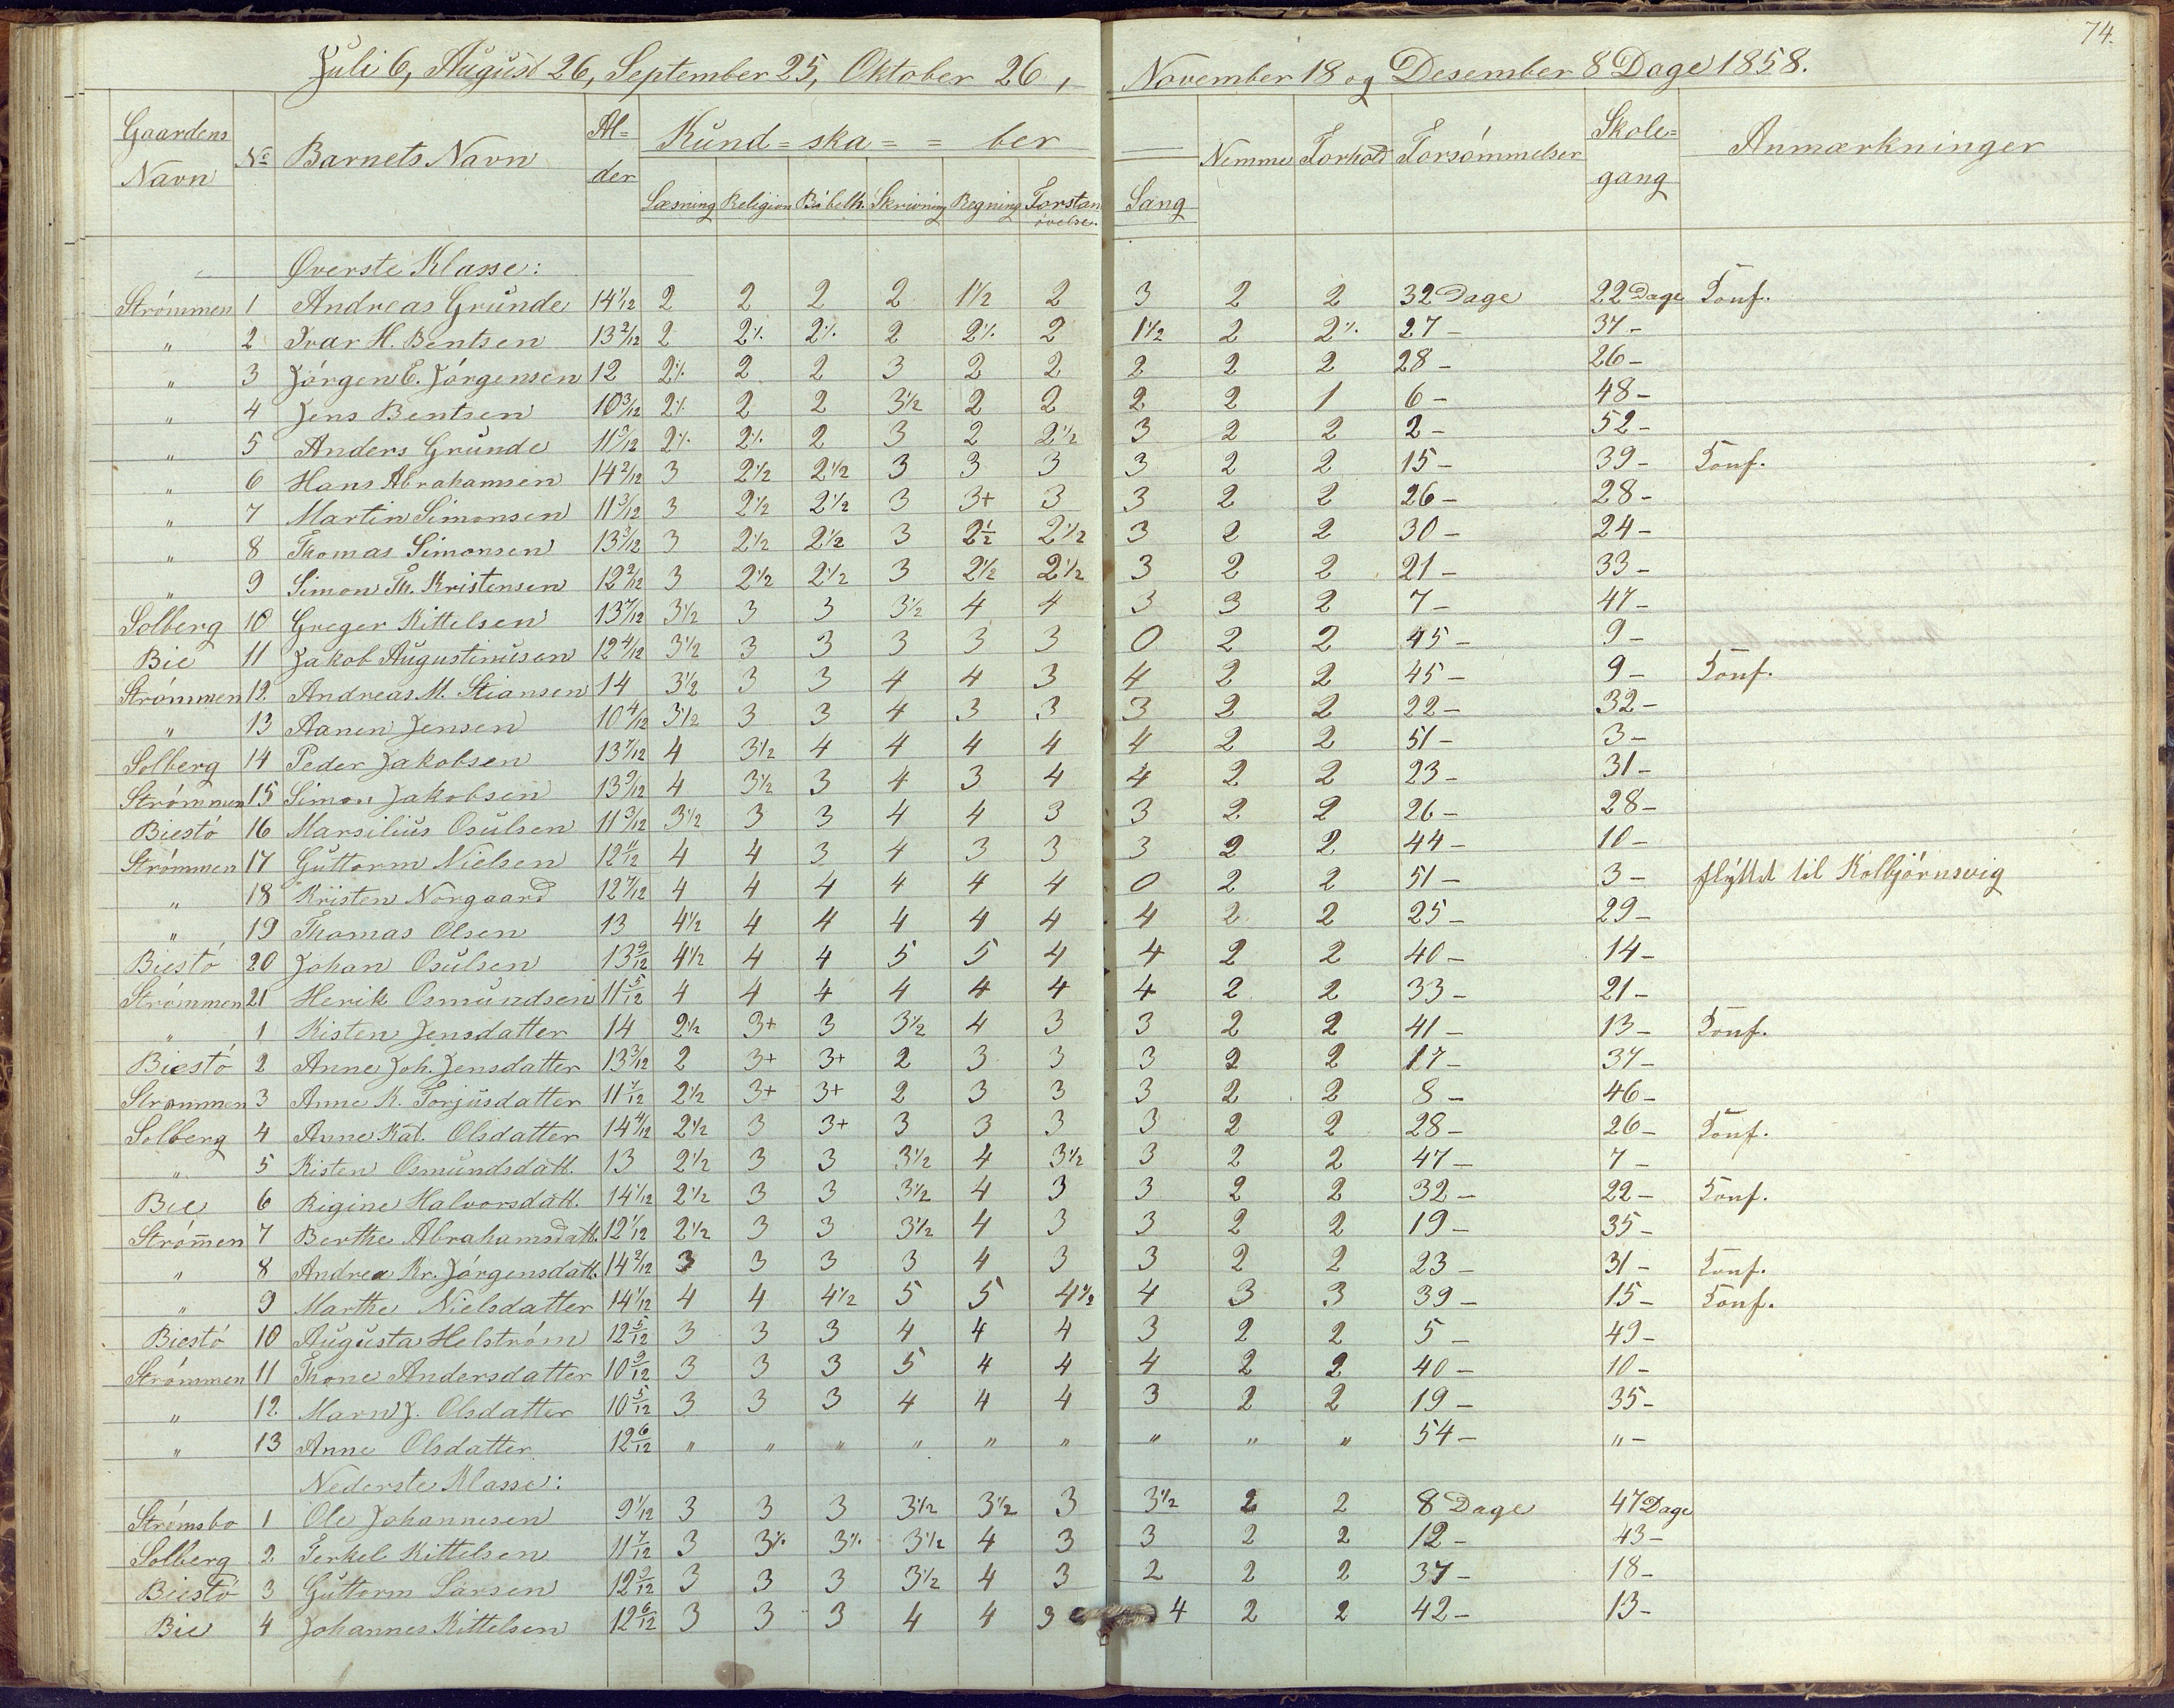 74.
Juli 6, August 26, September 25, Oktober 26, November 18 og Desember 8 Dage 1858.
Gaardens Navn | No | Barnets Navn | Al=der | Kund=ska==ber | Nemme | Forhold | Forsømmelser | Skole=gang | Anmærkninger
Læsning Religion Bibelh. Skrivning Regning Forstandøvelse. Sang
Øverste Klasse:
Strømmen 1 Andreas Grunde 14 1/12 2 2 2 2 1 1/2 2 3 2 2 32 Dage 22 Dage Konf.
" 2 Ivar H. Bentsen 13 2/12 2 2 ⁒ 2 ⁒ 2 2 ⁒ 2 1 1/2 2 2 ⁒ 27 - 37 -
" 3 Jørgen E. Jørgensen 12 2 ⁒ 2 2 3 2 2 2 2 2 28 - 26 -
" 4 Jens Bentsen 10 3/12 2 ⁒ 2 2 3 1/2 2 2 2 2 1 6 - 48 -
" 5 Anders Grunde 11 5/12 2 ⁒ 2 ⁒ 2 3 2 2 1/2 3 2 2 2 - 52 -
" 6 Hans Abrahamsen 14 2/12 3 2 1/2 2 1/2 3 3 3 3 2 2 15 - 39 - Konf.
" 7 Martin Simonsen 11 3/12 3 2 1/2 2 1/2 3 3+ 3 3 2 2 26 - 28 -
" 8 Thomas Simonsen 13 3/12 3 2 1/2 2 1/2 3 2 1/2 2 1/2 3 2 2 30 - 24 -
" 9 Simon Th. Kristensen 12 2/12 3 2 1/2 2 1/2 3 2 1/2 2 1/2 3 2 2 21 - 33 -
Solberg 10 Greger Kittelsen 13 7/12 3 1/2 3 3 3 1/2 4 4 3 3 2 7 - 47 -
Bie 11 Jakob Augustinusen 12 4/12 3 1/2 3 3 3 3 3 0 2 2 45 - 9 -
Strømmen 12. Andreas M. Stiansen 14 3 1/2 3 3 4 4 3 4 2 2 45 - 9 - Konf.
" 13 Aanen Jensen 10 4/12 3 1/2 3 3 4 3 3 3 2 2 22 - 32 -
Solberg 14 Peder Jakobsen 13 7/12 4 3 1/2 4 4 4 4 4 2 2 51 - 3 -
Strømmen 15 Simon Jakobsen 13 9/12 4 3 1/2 3 4 3 4 4 2 2 23 - 31 -
Biestø 16 Marsilius Osulsen 11 3/12 3 1/2 3 3 4 4 3 3 2 2 26 - 28 -
Strømmen 17 Guttorm Nielsen 12 11/12 4 4 3 4 3 3 3 2 2 44 - 10 -
" 18 Kristen Norgaard 12 7/12 4 4 4 4 4 4 0 2 2 51 - 3 - flyttet til Kolbjørnsvig
" 19 Thomas Olsen 13 4 1/2 4 4 4 4 4 4 2 2 25 - 29 -
Biestø 20 Johan Osulsen 13 9/12 4 1/2 4 4 5 5 4 4 2 2 40 - 14 -
Strømmen 21 Henrik Osmundsen 11 5/12 4 4 4 4 4 4 4 2 2 33 - 21 -
" 1 Kisten Jensdatter 14 2 1/2 3+ 3 3 1/2 4 3 3 2 2 41 - 13 - Konf.
Biestø 2 Anne Joh. Jensdatter 13 3/12 2 3+ 3+ 2 3 3 3 2 2 17 - 37 -
Strømmen 3 Anne K. Torjusdatter 11 1/12 2 1/2 3+ 3+ 2 3 3 3 2 2 8 - 46 -
Solberg 4 Anne Kat. Olsdatter 14 4/12 2 1/2 3 3+ 3 3 3 3 2 2 28 - 26 - Konf.
" 5 Kisten Osmundsdatt. 13 2 1/2 3 3 3 1/2 4 3 1/2 3 2 2 47 - 7 -
Bie 6 Rigine Halvorsdatt. 14 1/12 2 1/2 3 3 3 1/2 4 3 3 2 2 32 - 22 - Konf.
Strøm̅en 7 Berthe Abrahamsdatt. 12 1/12 2 1/2 3 3 3 1/2 4 3 3 2 2 19 - 35 -
" 8 Andrea Kr. Jørgensdatt. 14 2/12 3 3 3 3 4 3 3 2 2 23 - 31 - Konf.
" 9 Marthe Nielsdatter 14 1/12 4 4 4 1/2 5 5 4 1/2 4 3 3 39 - 15 - Konf.
Biestø 10 Augusta Helstrøm 12 5/12 3 3 3 4 4 4 3 2 2 5 - 49 -
Strømmen 11 Thone Andersdatter 10 9/12 3 3 3 5 4 4 4 2 2 40 - 10 -
" 12. Maren J. Olsdatter 10 5/12 3 3 3 4 4 4 3 2 2 19 - 35 -
" 13 Anne Olsdatter 12 6/12 " " " " " " " " " 54 - " -
Nederste Klasse:
Strømsbo 1 Ole Johannesen 9 1/12 3 3 3 3 1/2 3 1/2 3 3 1/2 2 2 8 Dage 47 Dage
Solberg 2 Terkel Kittelsen 11 7/12 3 3 ⁒ 3 ⁒ 3 1/2 4 3 3 2 2 12 - 43 -
Biestø 3 Guttorm Larsen 12 9/12 3 3 3 3 1/2 4 3 2 2 2 37 - 18 -
Bie 4 Johannes Kittelsen 12 6/12 3 3 3 4 4 3 4 2 2 42 - 13 -